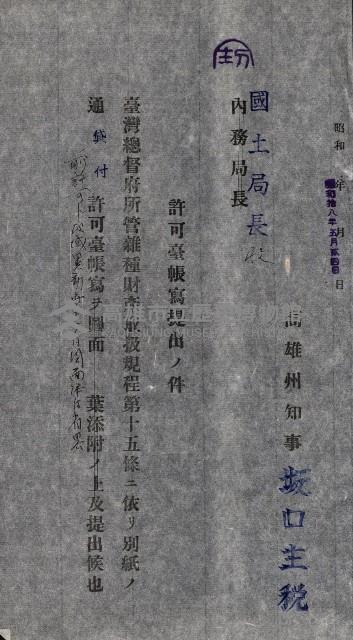 昭和 年 月 日
昭和拾八年五月貳四日
高雄州知事 坂口主税
國土局長殿
內務局長
許可臺帳寫提出ノ件
臺灣總督府所管雜種財產取扱規程第十五條ニ依リ別紙ノ
通貸付許可臺帳寫ヲ圖面 葉添附ノ上及提出候也